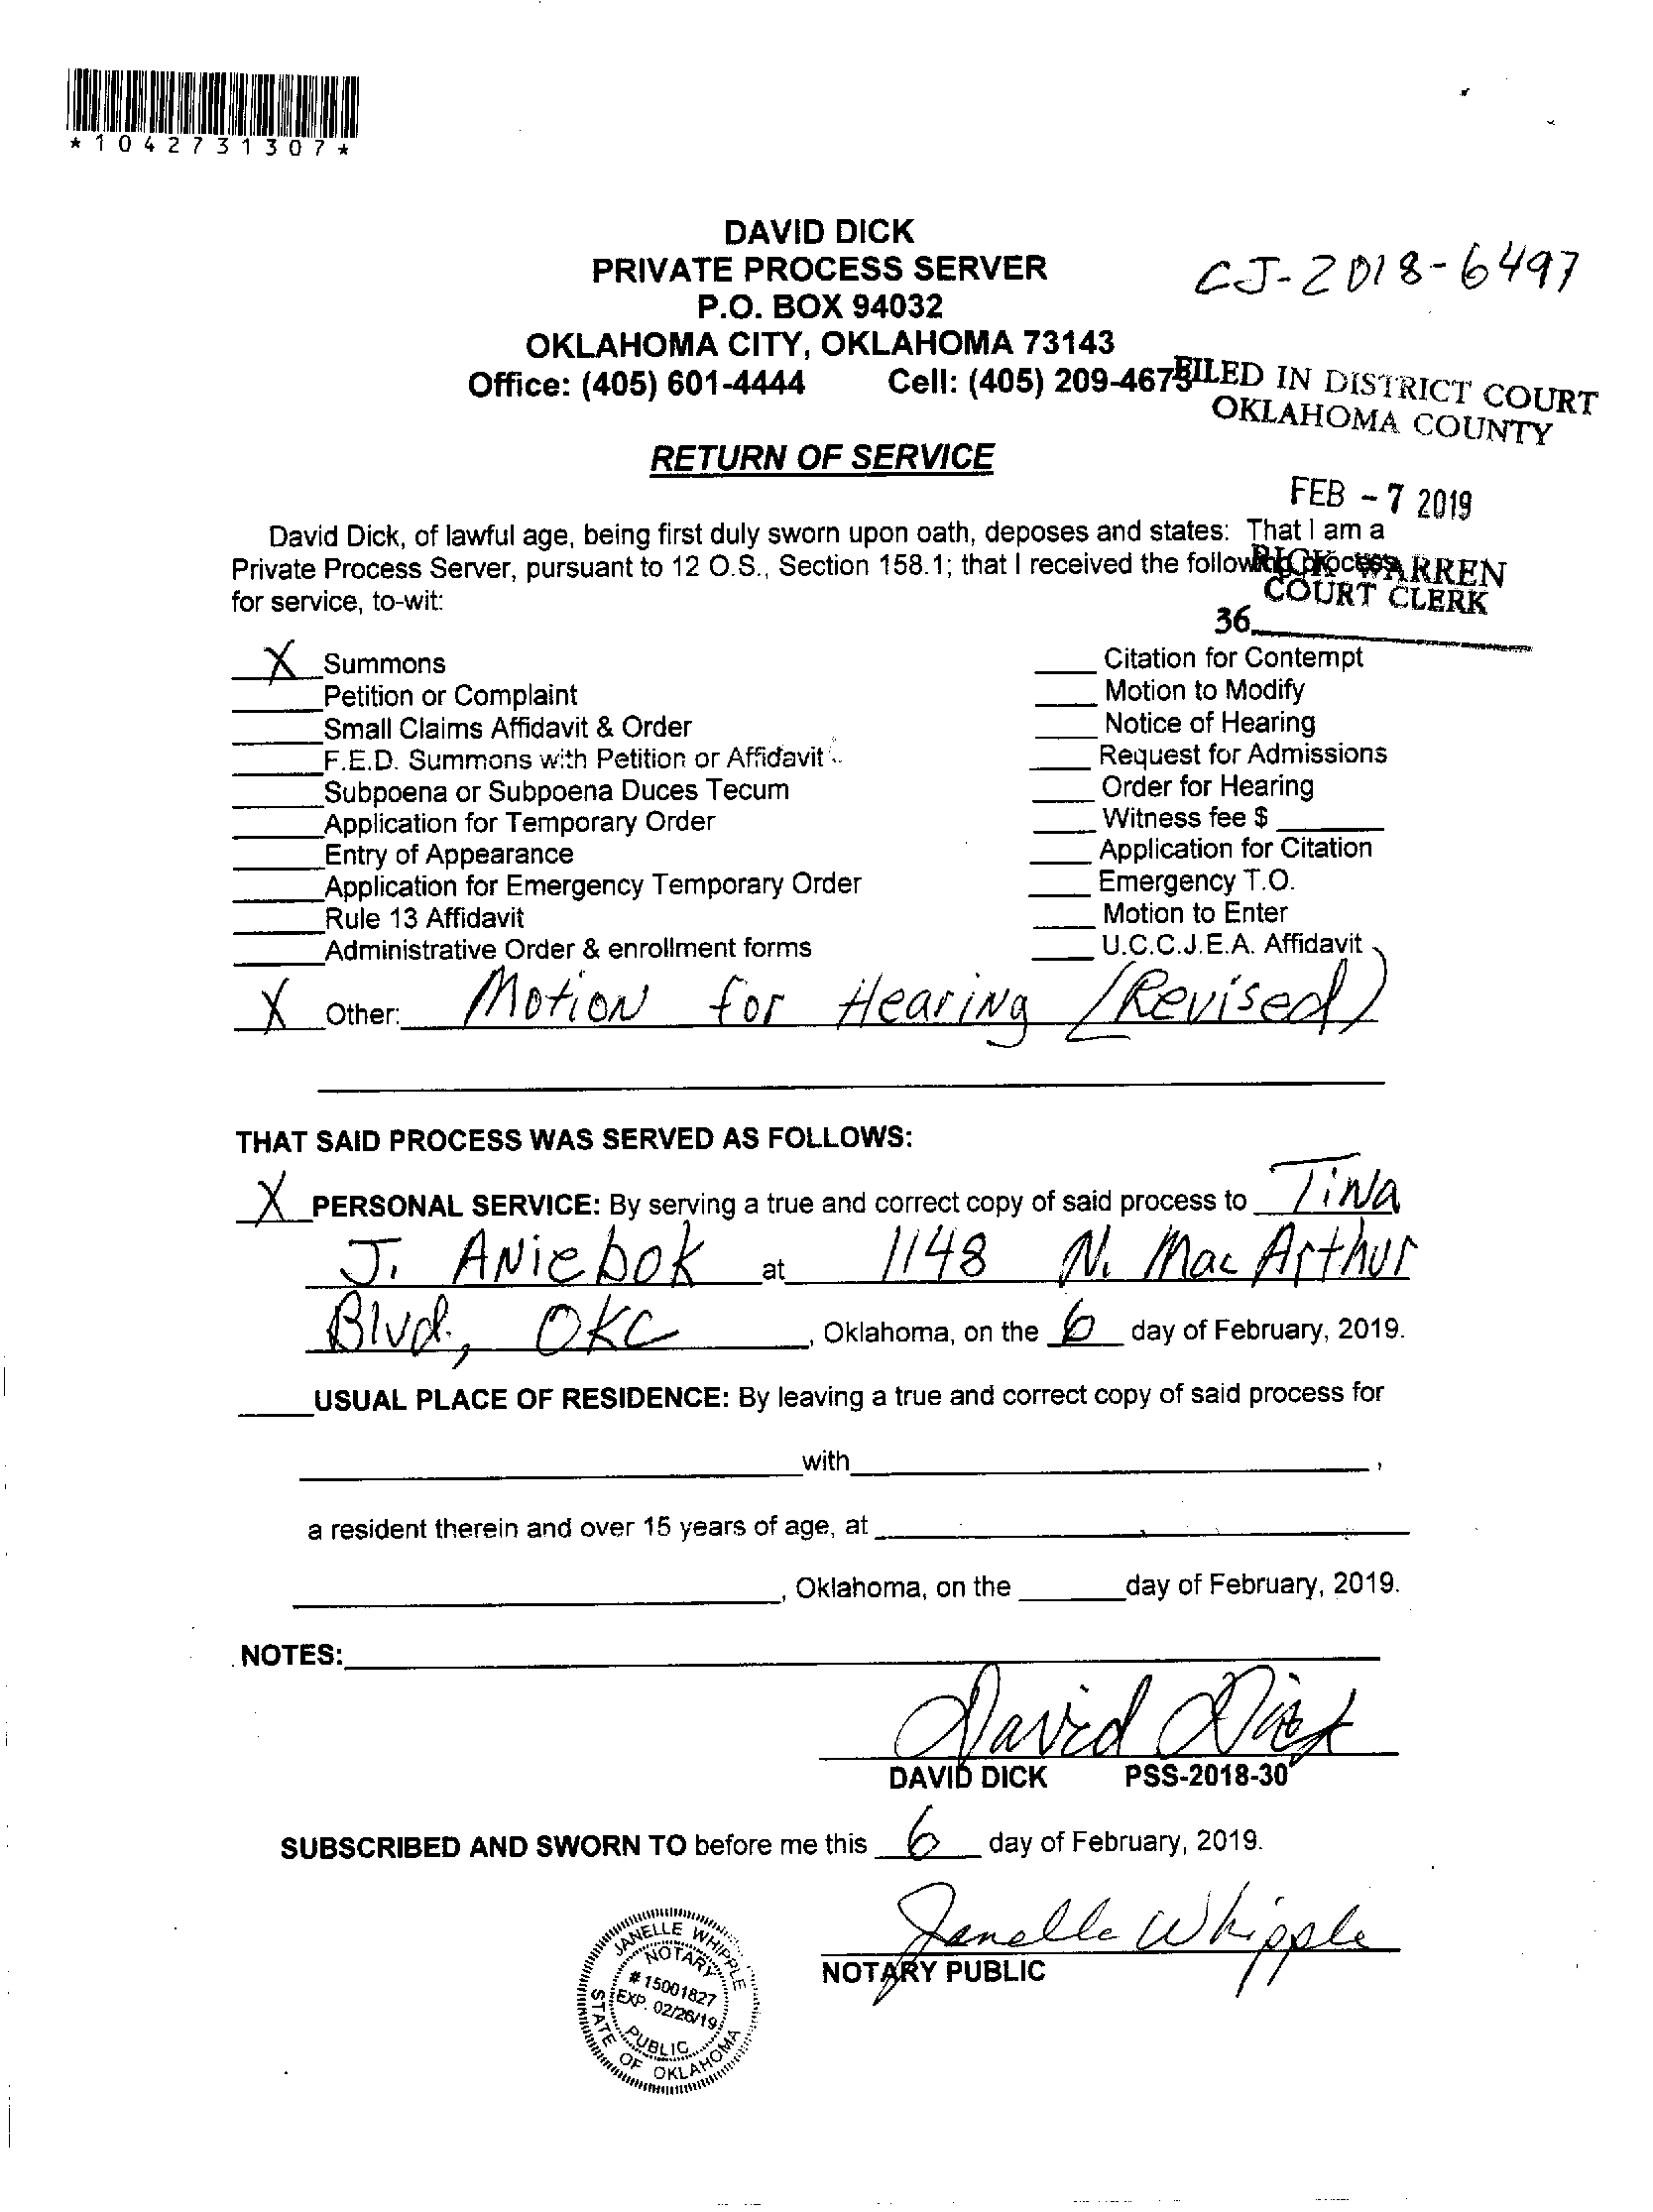 *1042731307*
DAVID DICK
PRIVATE PROCESS SERVER
P.O. BOX 94032
OKLAHOMA CITY, OKLAHOMA 73143
Office: (405) 601-4444 Cell: (405) 209-467
CJ-2018-6497
FILED IN DISTRICT COURT
OKLAHOMA COUNTY
FEB - 7 2019
RICK WARREN
COURT CLERK
36
RETURN OF SERVICE
David Dick, of lawful age, being first duly sworn upon oath, deposes and states: That I am a
Private Process Server, pursuant to 12 O.S., Section 158.1; that I received the following process
for service, to-wit:
X Summons
Petition or Complaint
Small Claims Affidavit & Order
F.E.D. Summons with Petition or Affidavit
Subpoena or Subpoena Duces Tecum
Application for Temporary Order
Entry of Appearance
Application for Emergency Temporary Order
Rule 13 Affidavit
Administrative Order & enrollment forms
Citation for Contempt
Motion to Modify
Notice of Hearing
Request for Admissions
Order for Hearing
Witness fee $
Application for Citation
Emergency T.O.
Motion to Enter
U.C.C.J.E.A. Affidavit
X Other: Motion for Hearing (Revised)
THAT SAID PROCESS WAS SERVED AS FOLLOWS:
X PERSONAL SERVICE: By serving a true and correct copy of said process to Tina
J. Aniebok at 1148 N. MacArthur
Blvd., OKC, Oklahoma, on the 6 day of February, 2019.
USUAL PLACE OF RESIDENCE: By leaving a true and correct copy of said process for
with ,
a resident therein and over 15 years of age, at
, Oklahoma, on the day of February, 2019.
NOTES:
David Dick
DAVID DICK PSS-2018-30
SUBSCRIBED AND SWORN TO before me this 6 day of February, 2019.
Janelle Whipple
NOTARY PUBLIC
JANELLE WHIPPLE
NOTARY
# 15001827
EXP. 02/26/19
PUBLIC
STATE OF OKLAHOMA